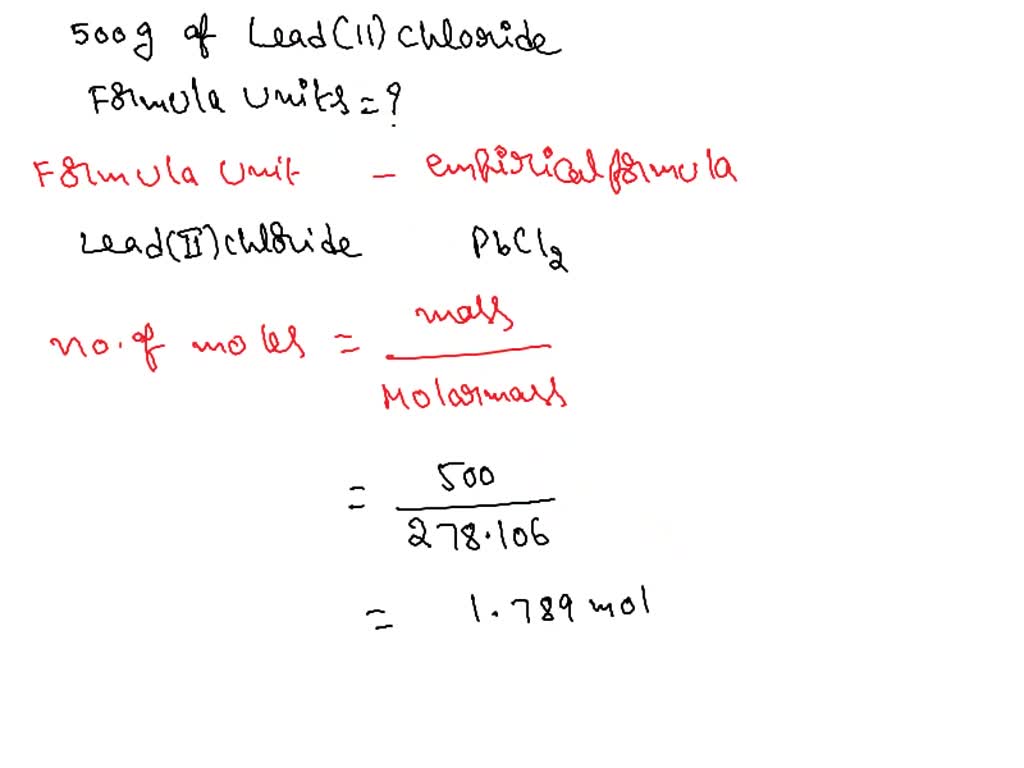 500g of Lead(II) chloride
Formula units = ?
Formula unit - empirical formula
Lead(II) chloride PbCl2
no. of moles = mass / Molarmass
= 500 / 278.106
= 1.789 mol